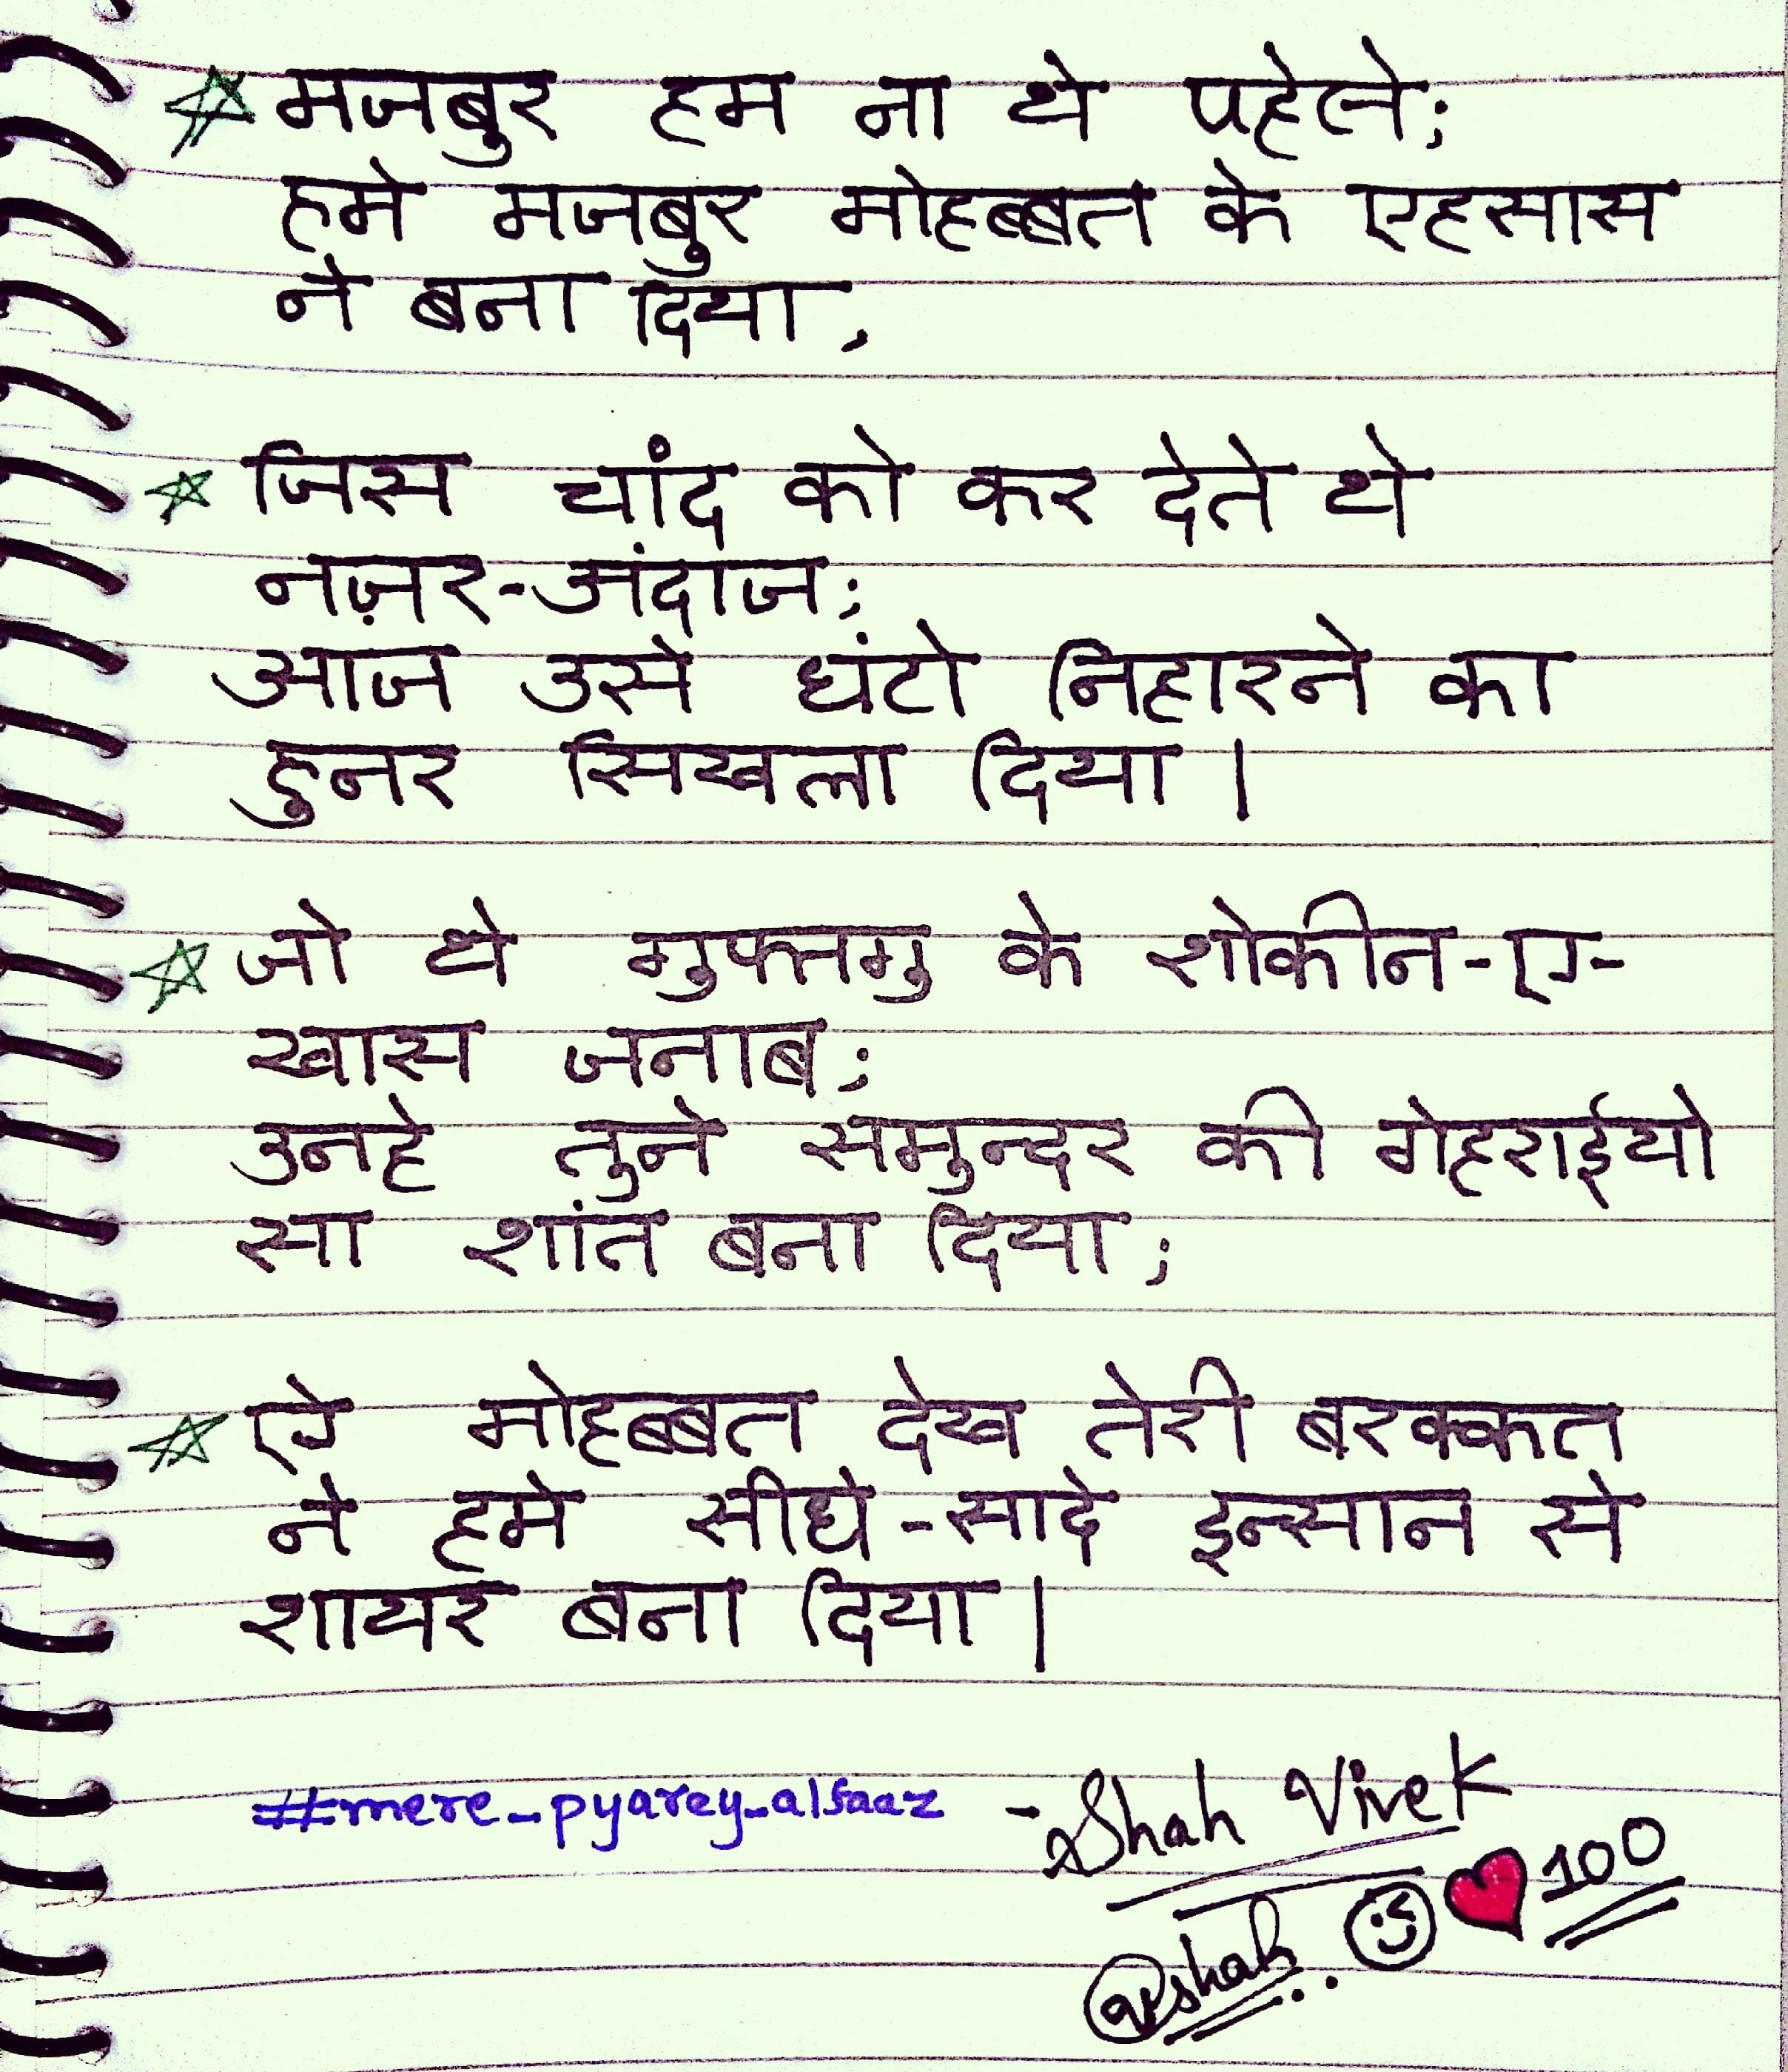 मजबुर हम ना थे पहेले;
हमे मजबुर मोहब्बत के एहसास
ने बना दिया,
जिस चांद को कर देते थे
नज़र-अंदाज;
आज उसे घंटो निहारने का
हुनर सिखला दिया।
जो थे गुफ्तगु के शोकीन-ए-
खास जनाब;
उनहे तुने समुन्दर की गेहराईयो
सा शांत बना दिया;
ऐ मोहब्बत देख तेरी बरक्कत
ने हमे सीधे-सादे इन्सान से
शायर बना दिया।
#mere_pyarey_alfaaz
-Shah Vivek
100